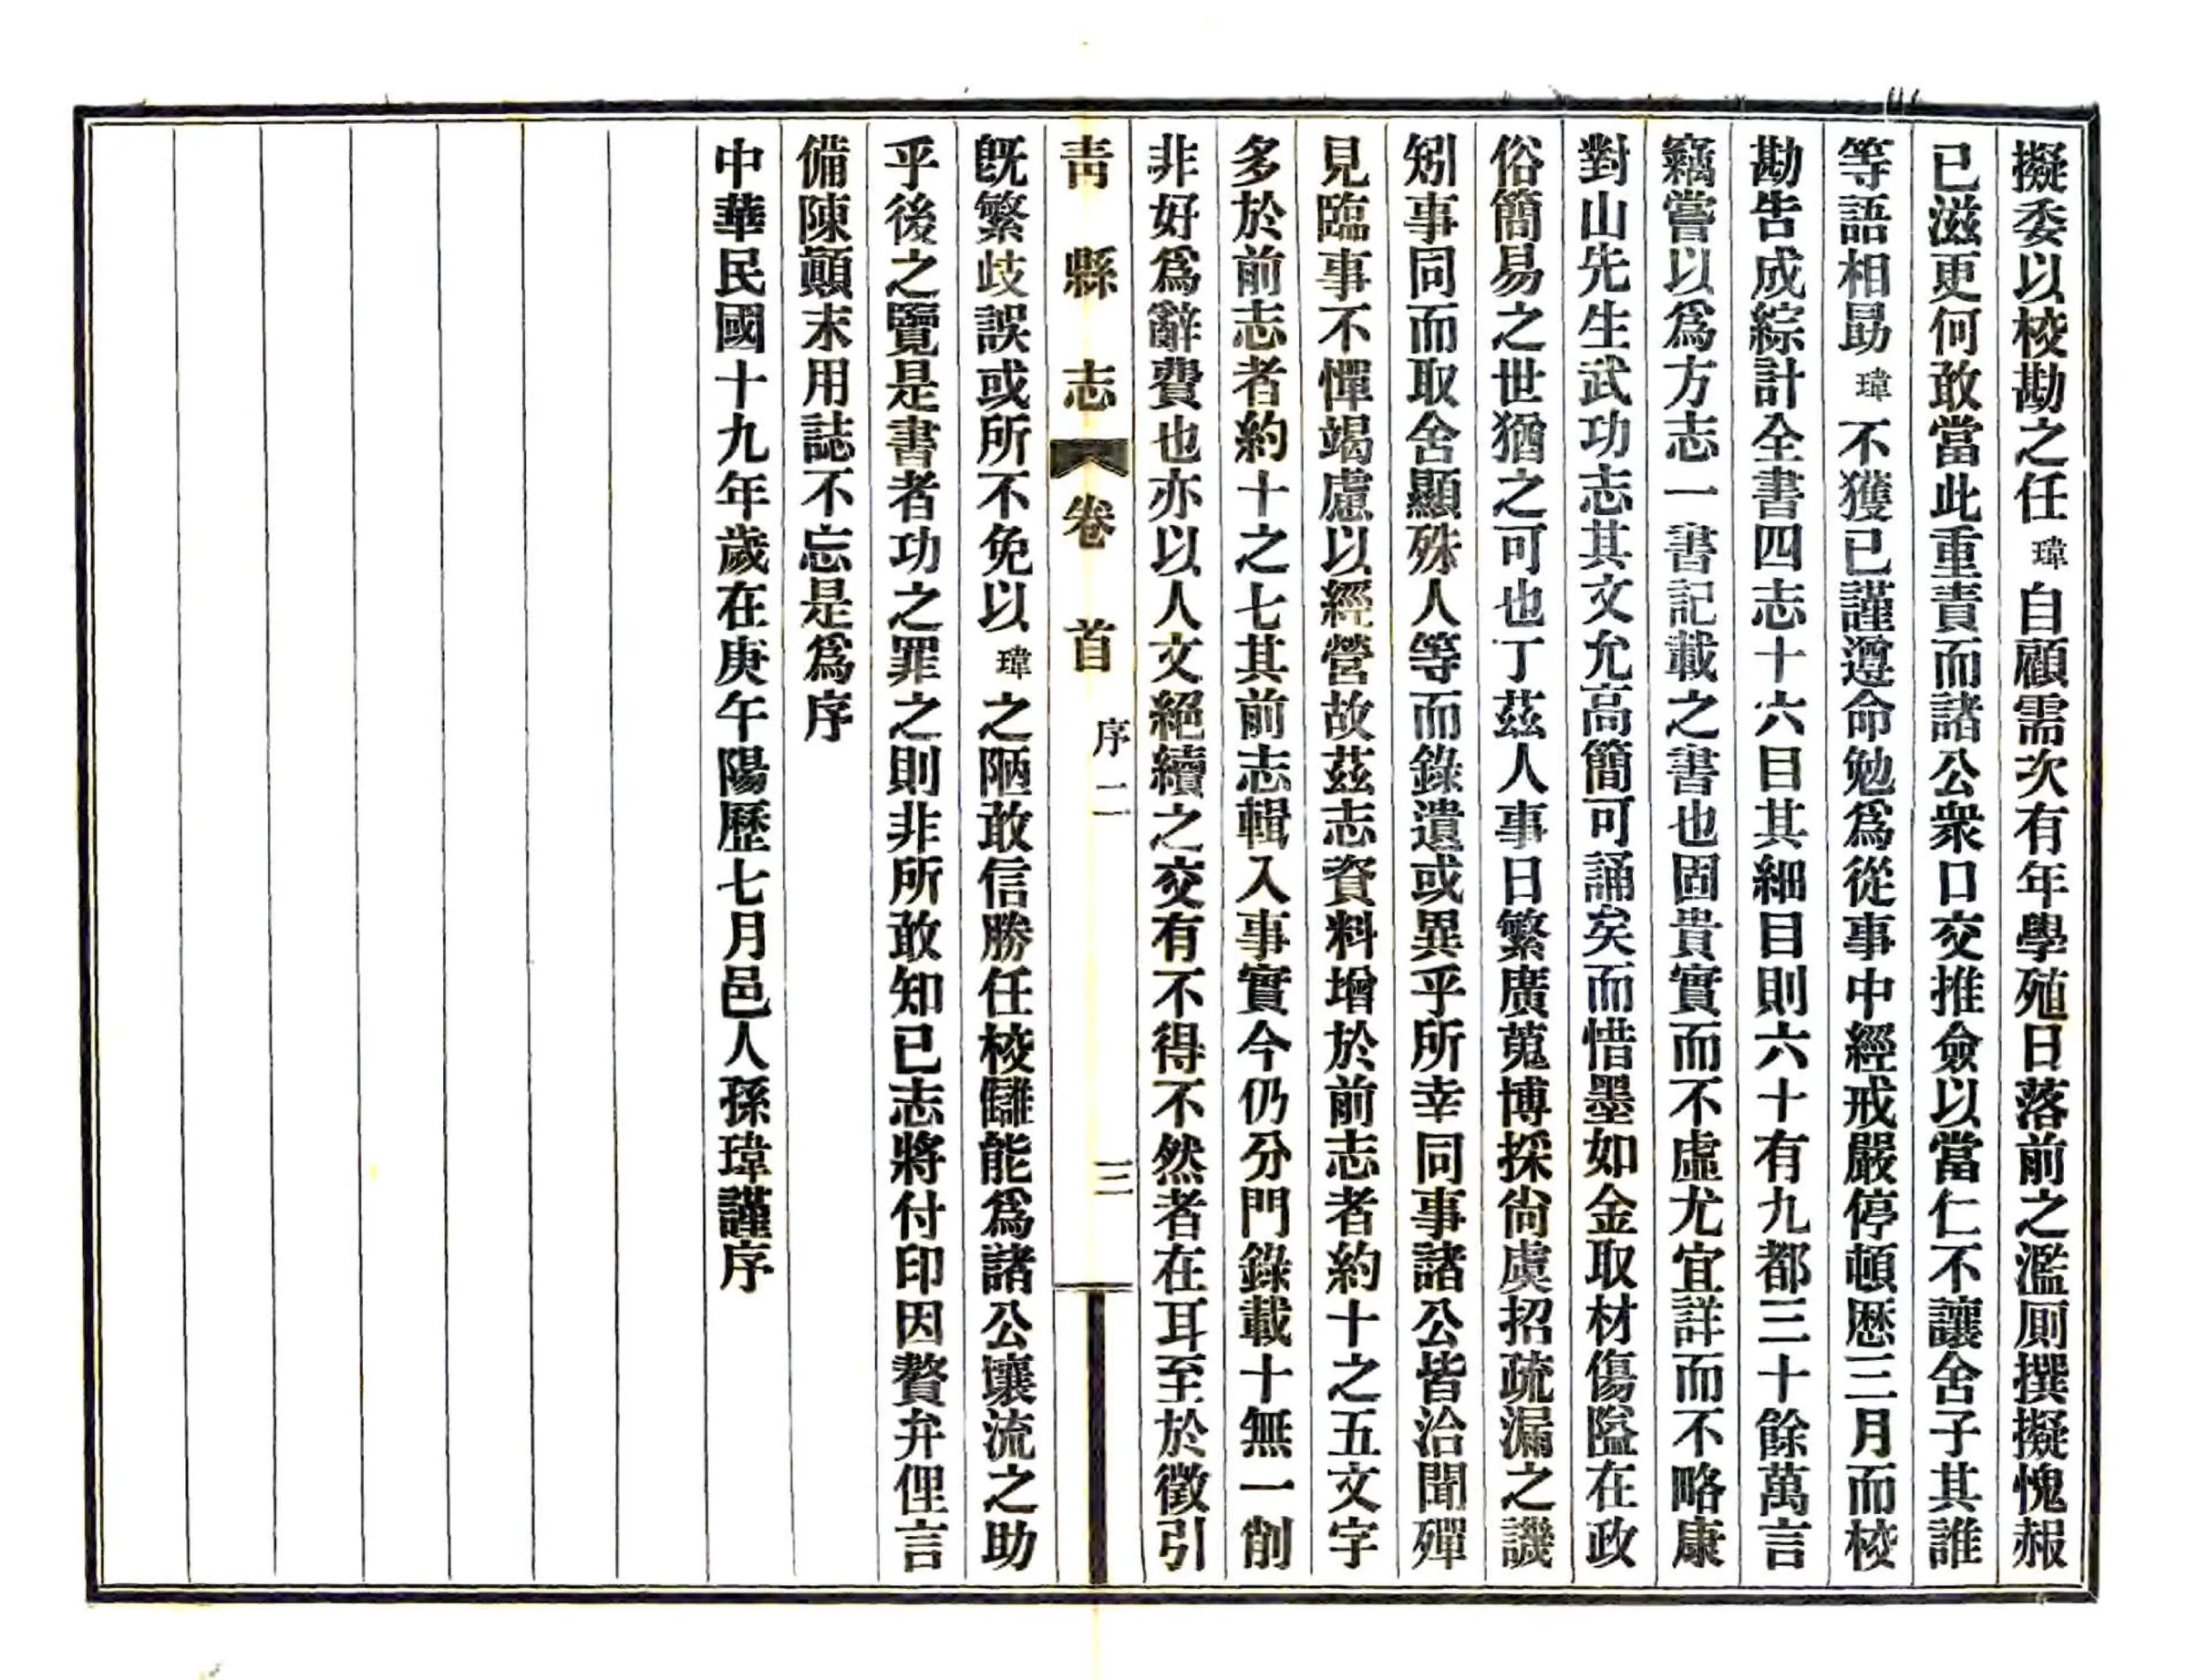 擬委以校勘之任瑋自顧需次有年學殖日落前之濫厠撰擬愧赧
已滋更何敢當此重責而諸公衆口交推僉以當仁不讓舍子其誰
等語相勗瑋不獲已謹遵命勉爲從事中經戒嚴停頓歷三月而校
勘告成綜計全書四志十六目其細目則六十有九都三十餘萬言
竊嘗以爲方志一書記載之書也固貴實而不虛尤宜詳而不略康
對山先生武功志其文允高簡可誦矣而惜墨如金取材傷隘在政
俗簡易之世猶之可也丁茲人事日繁廣蒐博採尙虞招疏漏之譏
矧事同而取舍顯殊人等而錄遺或異乎所幸同事諸公皆洽聞殫
見臨事不憚竭慮以經營故茲志資料增於前志者約十之五文字
多於前志者約十之七其前志輯入事實今仍分門錄載十無一削
非好爲辭費也亦以人文絕續之交有不得不然者在耳至於徵引
靑縣志 卷首 序二 三
旣繁歧誤或所不免以瑋之陋敢信勝任校讎能爲諸公壤流之助
乎後之覽是書者功之罪之則非所敢知已志將付印因贅弁俚言
備陳顚末用誌不忘是爲序
中華民國十九年歲在庚午陽歷七月邑人孫瑋謹序